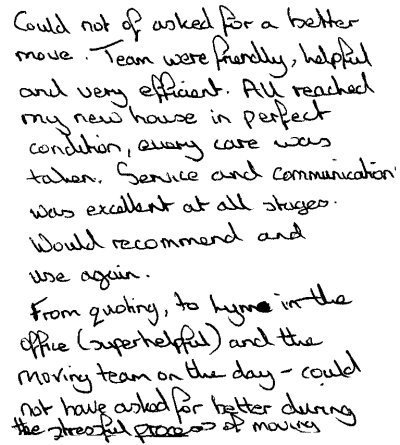 Could not of asked for a better
move. Team were friendly, helpful
and very efficient. All reached
my new house in perfect
condition, every care was
taken. Service and communication
was excellent at all stages.
Would recommend and
use again.
From quoting, to Lynne in the
office (superhelpful) and the
moving team on the day - could
not have asked for better during
the stressful process of moving